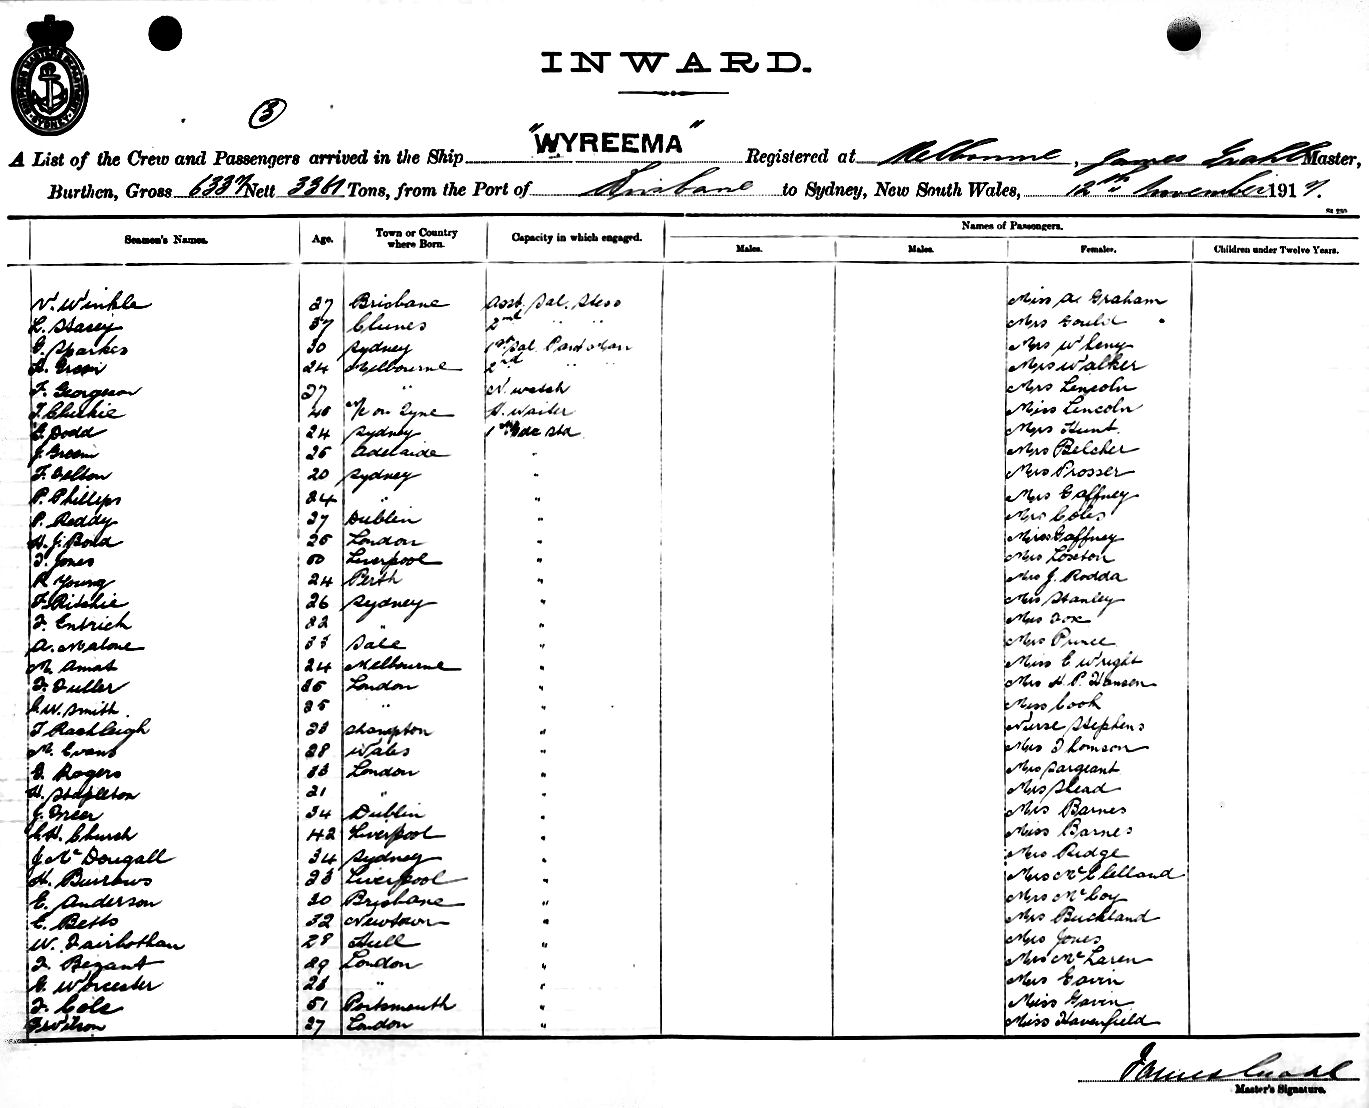 SHIPPING MASTERS DEPARTMENT SYDNEY
INWARD.
3
"WYREEMA"
A List of the Crew and Passengers arrived in the Ship "WYREEMA" Registered at Melbourne, James Grahl Master,
Burthen, Gross 6337 Nett 3361 Tons, from the Port of Brisbane to Sydney, New South Wales, 12th November 1917.
Seamen's Names. Age. Town or Country where Born. Capacity in which engaged. Names of Passengers.
Males. Males. Females. Children under Twelve Years.
V. Winkle 27 Brisbane Asst. Sal. Stess Miss A Graham
L. Stasey 37 Clunes 2nd " " Mrs Gould
G. Sparkes 30 Sydney 1st Sal. Pantryman Mrs Wheny
Green 24 Melbourne 2nd " " Mrs Walker
F. Georgeson 27 " N. watch Mrs Lincoln
T. Clukie 40 N/C on Tyne H. Waiter Miss Lincoln
G. Dodd 24 Sydney 1st Gde Std Mrs Hunt
J. Green 25 Adelaide " Mrs Belcher
F. Nelson 20 Sydney " Mrs Prosser
P. Phillips 24 " " Mrs Gaffney
P. Reddy 27 Dublin " Mrs Coles
H. J. Bond 25 London " Miss Gaffney
T. Jones 50 Liverpool " Mrs Loseton
R. Young 24 Perth " Mrs J. Rodda
F. Ritchie 26 Sydney " Mrs Stanley
F. Entrich 32 " " Mrs Fox
A. Malone 33 Sale " Mrs Prince
M. Amat 24 Melbourne " Miss C Wright
F. Fuller 35 London " Mrs H. P. Hansen
W. Smith 25 " " Miss Cook
T. Rashleigh 23 Shampton " Nurse Stephens
M. Evans 28 Wales " Mrs Thomson
G. Rogers 33 London " Mrs Sargeant
H. Stapleton 21 " " Mrs Stead
J. Greer 34 Dublin " Mrs Barnes
C. H. Church 42 Liverpool " Miss Barnes
J. McDougall 34 Sydney " Mrs Ridge
H. Burrows 23 Liverpool " Mrs McClelland
E. Anderson 30 Brisbane " Mrs McCoy
C. Betts 32 Newtown " Mrs Buckland
W. Fairbothan 28 Hull " Mrs Jones
F. Bezant 29 London " Mrs McLaren
G. Worcester 28 " " Mrs Gavin
F. Cole 51 Portsmouth " Miss Gavin
F. Wilson 27 London " Miss Havenfield
James Grahl
Master's Signature.